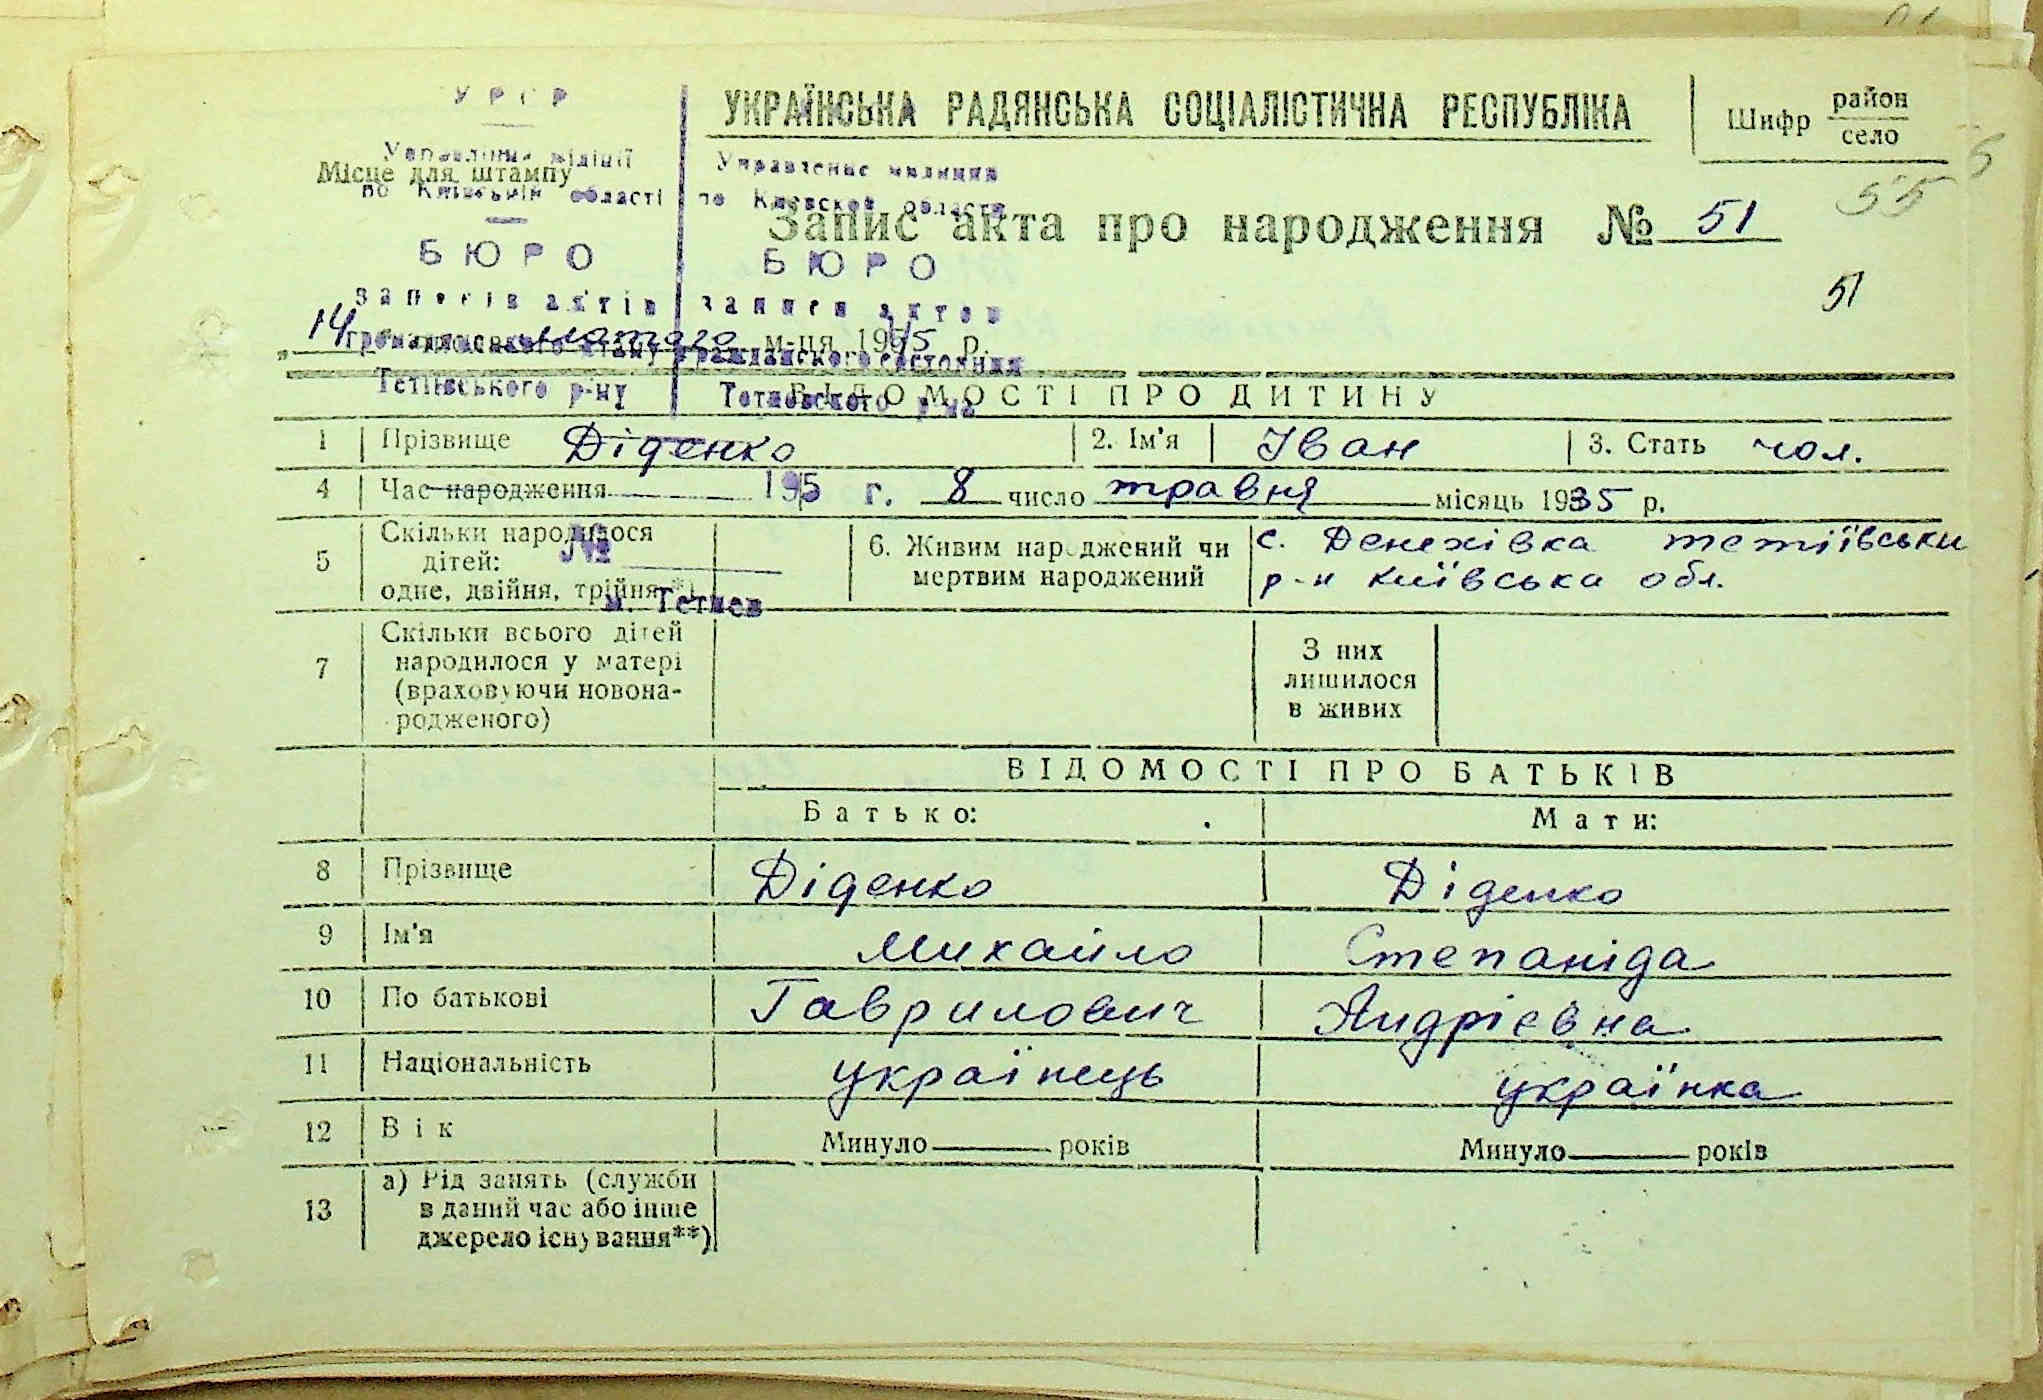 УРСР
УКРАЇНСЬКА РАДЯНСЬКА СОЦІАЛІСТИЧНА РЕСПУБЛІКА
Шифр район
село
Управління міліції
Управление милиции
Місце для штампу
по Київській області
по Киевской области
55
Запис акта про народження № 51
БЮРО
БЮРО
51
записів актів
записи актов
14 лютого м-ця 1955 р.
громадянського стану
гражданского состояния
Тетіївського р-ну
Тетиевского р-на
ВІДОМОСТІ ПРО ДИТИНУ
1 Прізвище Діденко 2. Ім'я Іван 3. Стать чол.
4 Час народження 195 г. 8 число травня місяць 1935 р.
5 Скільки народилося дітей: одне, двійня, трійня*)
№
м. Тетиев
6. Живим народжений чи мертвим народжений
с. Денехівка тетіївськи
р-н київська обл.
7 Скільки всього дітей народилося у матері (враховуючи новонародженого)
З них лишилося в живих
ВІДОМОСТІ ПРО БАТЬКІВ
Батько: Мати:
8 Прізвище Діденко Діденко
9 Ім'я Михайло Степаніда
10 По батькові Гаврилович Андрієвна
11 Національність українець українка
12 Вік Минуло років Минуло років
13 а) Рід занять (служби
в даний час або інше
джерело існування**)